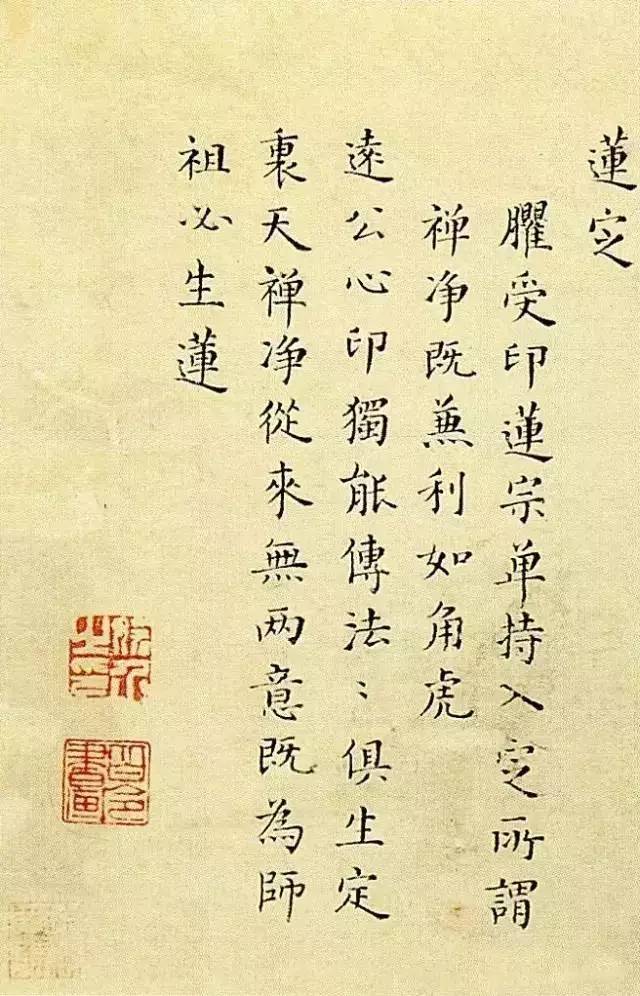 蓮定
臞受印蓮宗单持入定所謂
禅净既蒹利如角虎
遠公心印獨能傳法：俱生定
裏天禅净從來無两意既為師
祖必生蓮